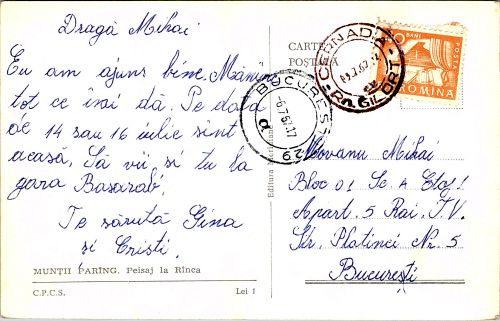 Dragă Mihai
Eu am ajuns bine. Mănînc
tot ce îmi dă. Pe data
de 14 sau 16 iulie sînt
acasă. Să vii și tu la
gara Basarab.
Te sărută Gina
și Cristi.
MUNȚII PARÎNG. Peisaj la Rînca
C.P.C.S.
Lei 1
CARTE
POȘTALĂ
Editura
CERNADIA
Rn. GILORT
BUCUREȘTI
-6.7.67.17
29
BANI
POSTA
ROMINA
Movanu Mihai
Bloc 01 Sc. A Etaj 1
Apart. 5 Rai. T.V.
Str. Platinei Nr. 5
București